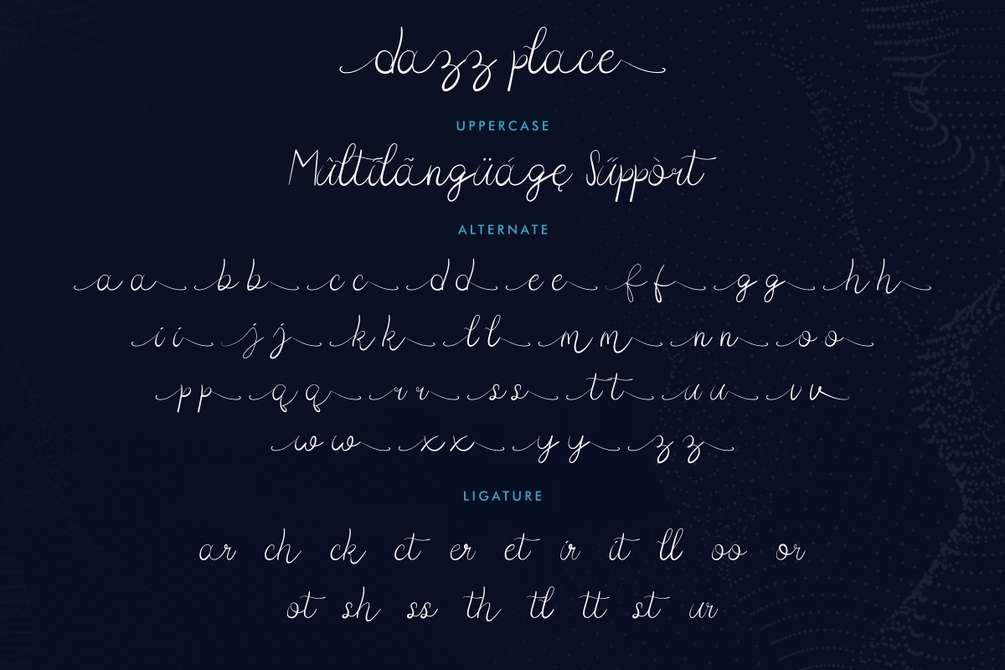 dazz place
UPPERCASE
Mûltílãngüágę Sűppòrt
ALTERNATE
a a b b c c d d e e f f g g h h
i i j j k k l l m m n n o o
p p q q r r s s t t u u v v
w w x x y y z z
LIGATURE
ar ch ck ct er et ir it ll oo or
ot sh ss th tl tt st ur